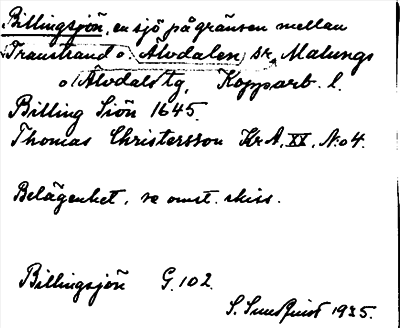 Billingsjön, en sjö på gränsen mellan
Transtrand o. Älvdalen, sk, Malungs
o. Älvdals tg, Kopparb. l.
Billing Siön 1645.
Thomas Christersson Kr A, XX, No 4.
Belägenhet, se omst. skiss.
Billingsjön G. 102.
S. Sundquist 1935.